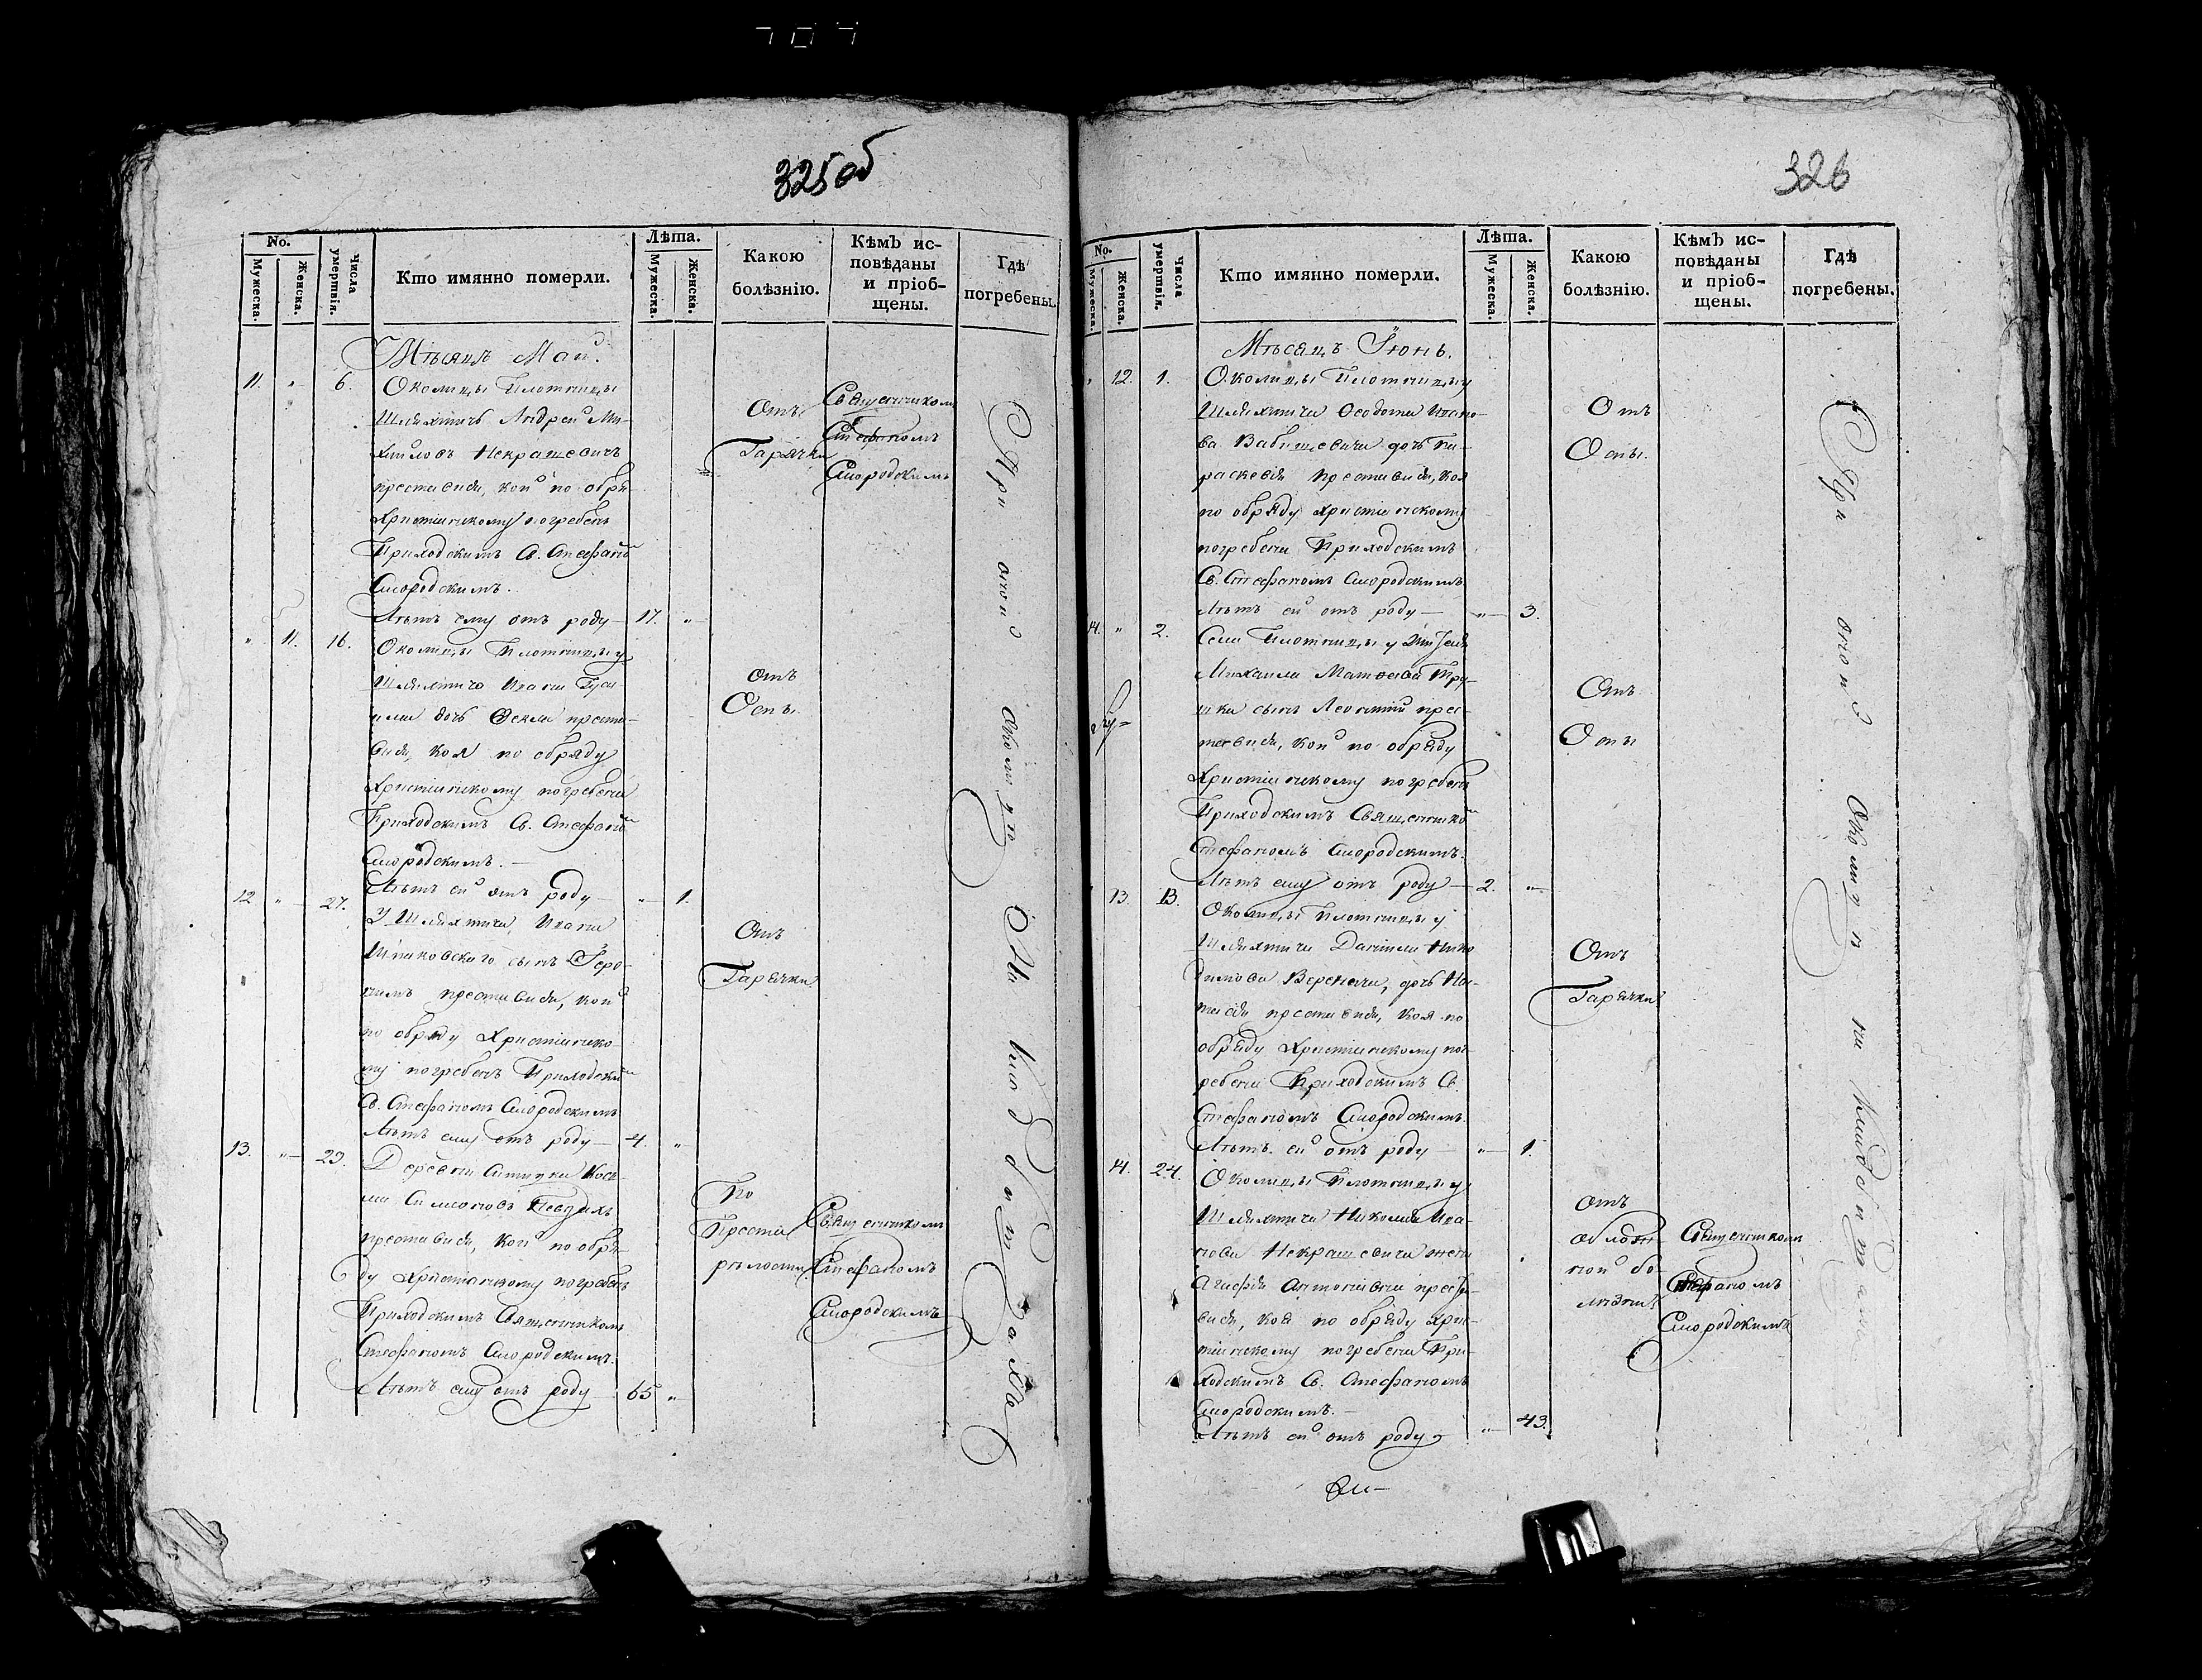 707
325об
No.
Мужеска.
Женска.
Числа умертвія.
Кто имянно померли.
Лѣта.
Мужеска.
Женска.
Какою болѣзнію.
Кѣмъ исповѣданы и пріобщены.
Гдѣ погребены.
Мѣсяцъ Май.
11. " 6. Околицы Плотницы
Шляхтичъ Андрей Ми-
хайловъ Некрашевичъ
преставися, кой по обря-
Христіанскому погребенъ
Приходскимъ Св. Стефаном
Смородскимъ.
Лѣтъ ему отъ роду — 17. "
Отъ
Гарячки
Священникомъ
Стефаномъ
Смородскимъ
" 11. 16. Околицы Плотницы у
Шляхтича Ивана
дочь Фекла преста-
вися, коя по обряду
Христіанскому погребена
Приходскимъ Св. Стефаном
Смородскимъ. —
Лѣтъ ей отъ роду — " 1.
Отъ
Оспы
12 " 27. У Шляхтича Ивана
сынъ Геро-
нимъ преставися, кой
по обряду Христіанско-
му погребенъ Приходским
Св. Стефаномъ Смородскимъ
Лѣтъ ему отъ роду — 4. "
Отъ
Гарячки
13. " 29. Деревни Косъ-
ма Симоновъ
преставися, кой по обря-
ду Христіанскому погребенъ
Приходскимъ Священникомъ
Стефаномъ Смородскимъ.
Лѣтъ ему отъ роду 65 "
По
Преста-
рѣлости
Священникомъ
Стефаномъ
Смородскимъ
При оной Околицѣ На кладбищахъ
326
No.
Мужеска.
Женска.
Числа умертвія.
Кто имянно померли.
Лѣта.
Мужеска.
Женска.
Какою болѣзнію.
Кѣмъ исповѣданы и пріобщены.
Гдѣ погребены.
Мѣсяцъ Іюнь.
" 12. 1. Околицы Плотницы у
Шляхтича Ѳеодота Ивано-
ва Вабищевича дочь Па-
раскевія преставися, коя
по обряду Христіанскому
погребена Приходскимъ
Св. Стефаномъ Смородскимъ
Лѣтъ ей отъ роду — " 3.
Отъ
Оспы.
14. " 2. Села Плотницы у
Михаила Матвеева Тру-
шка сынъ Леонтій прес-
тавися, кой по обряду
Христіанскому погребенъ
Приходскимъ Священником
Стефаномъ Смородскимъ.
Лѣтъ ему отъ роду — 2. "
Отъ
Оспы
13. 13. Околицы Плотницы у
Шляхтича Даніила Нико-
димова Веренича, дочь Нас-
тасія преставися, коя по
обряду Христіанскому пог-
ребена Приходскимъ Св.
Стефаномъ Смородскимъ.
Лѣтъ ей отъ роду — " 1.
Отъ
Гарячки
14. 24. Околицы Плотницы у
Шляхтича Николая Ива-
нова Некрашевича жена
Агафія Антоніева преста-
вися, коя по обряду Хрис-
тіанскому погребена При-
ходскимъ Св. Стефаномъ
Смородскимъ. —
Лѣтъ ей отъ роду " 43.
отъ
ной бо-
лѣзни
Священникомъ
Стефаномъ
Смородскимъ
При оной Околицѣ на Кладбищахъ